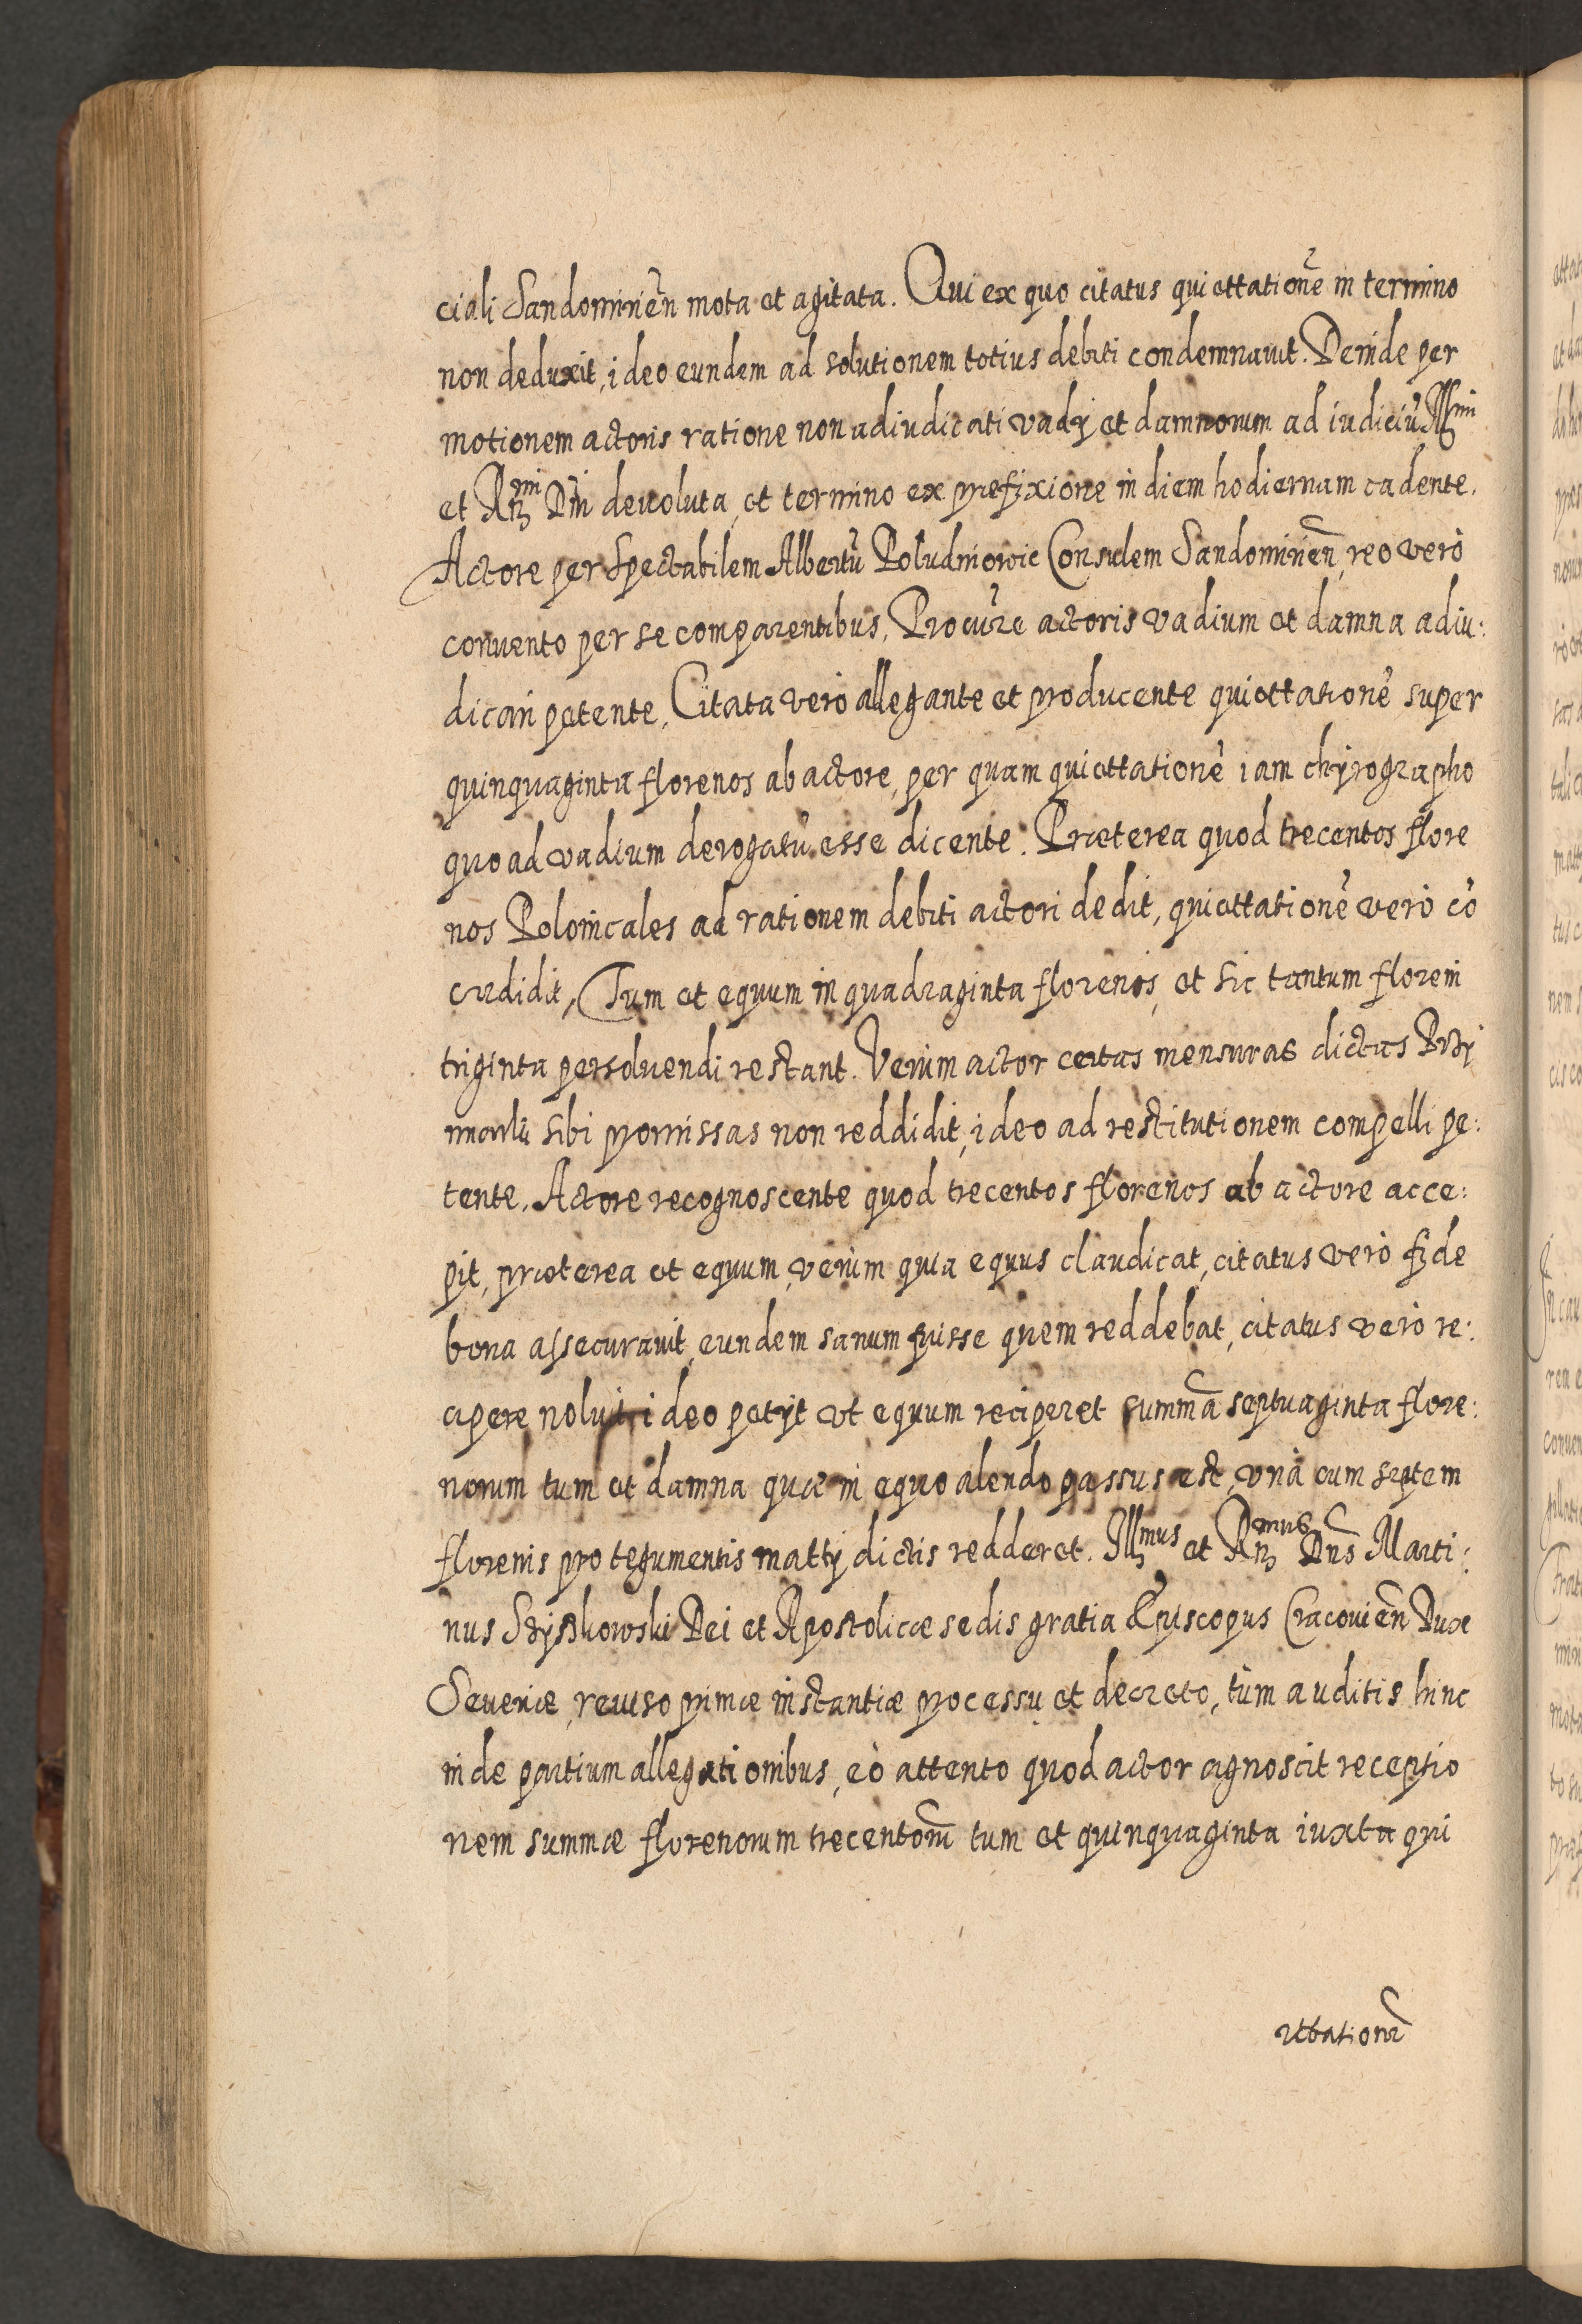 ciali Sandomirien̄ mota et agitata. Qui ex quo citatus quiettationē in termino
non deduxit, ideo eundem ad solutionem totius debiti condemnauit. Deinde per
motionem actoris ratione non adiudicati vadij et damnorum ad iudiciū Illmi
et Rmi Dni deuoluta, et termino ex prefixione in diem hodiernam cadente.
Actore per Spectabilem Albertū Poludniowic Consulem Sandomirien̄, reo verò
conuento per se comparentibus. Procure actoris vadium et damna adiu:
dicari petente, Citata verò allegante et producente quiettationē super
quinquaginta florenos ab actore, per quam quiettationē iam chyrographo
quo ad vadium derogatū esse dicente. Præterea quod trecentos flore
nos Polonicales ad rationem debiti actori dedit, quiettationē verò cō
credidit, Tum et equum in quadraginta florenis, et sic tantum floreni
triginta persoluendi restant. Verùm actor certas mensuras dictas
sibi promissas non reddidit, ideo ad restitutionem compelli pe:
tente. Actore recognoscente quod trecentos florenos ab actore acce:
pit, præterea et equum, verùm quia equus claudicat, citatus verò fide
bona assecurauit, eundem sanum fuisse quem reddebat, citatus verò re:
cipere noluit, ideo petijt vt equum reciperet summā septuaginta flore:
norum tum et damna quæ in equo alendo passus est, vnà cum septem
florenis pro tegumentis matty dictis redderet. Illmus et Rmus Dns Marti:
nus Szyszkowski Dei et Apostolicæ sedis gratia Episcopus Cracouien̄ Dux
Seueriæ, reuiso primæ instantiæ processu et decreto, tùm auditis hinc
inde partium allegationibus, eò attento quod actor agnoscit receptio
nem summæ florenorum trecentorū tum et quinquaginta iuxta qui
ettationē